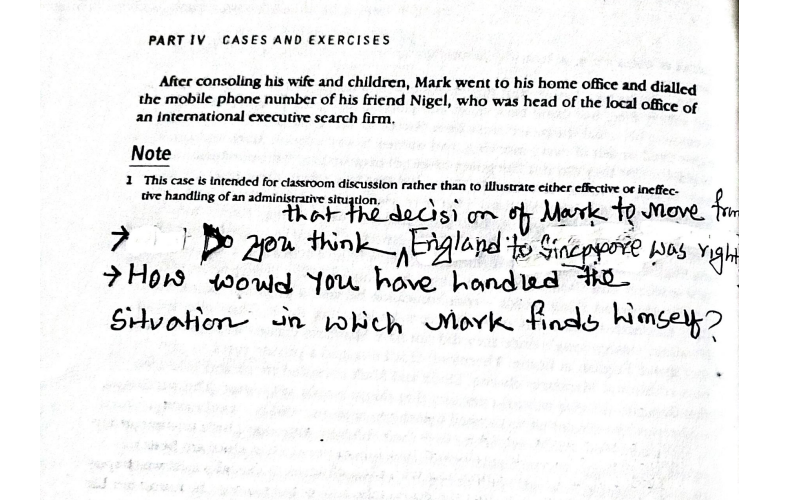 PART IV CASES AND EXERCISES
After consoling his wife and children, Mark went to his home office and dialled
the mobile phone number of his friend Nigel, who was head of the local office of
an international executive search firm.
Note
1 This case is intended for classroom discussion rather than to illustrate either effective or ineffec-
tive handling of an administrative situation.
that the decision of Mark to move from
→ Do you think ^ England to Singapore was right
→ How would you have handled the
situation in which Mark finds himself?